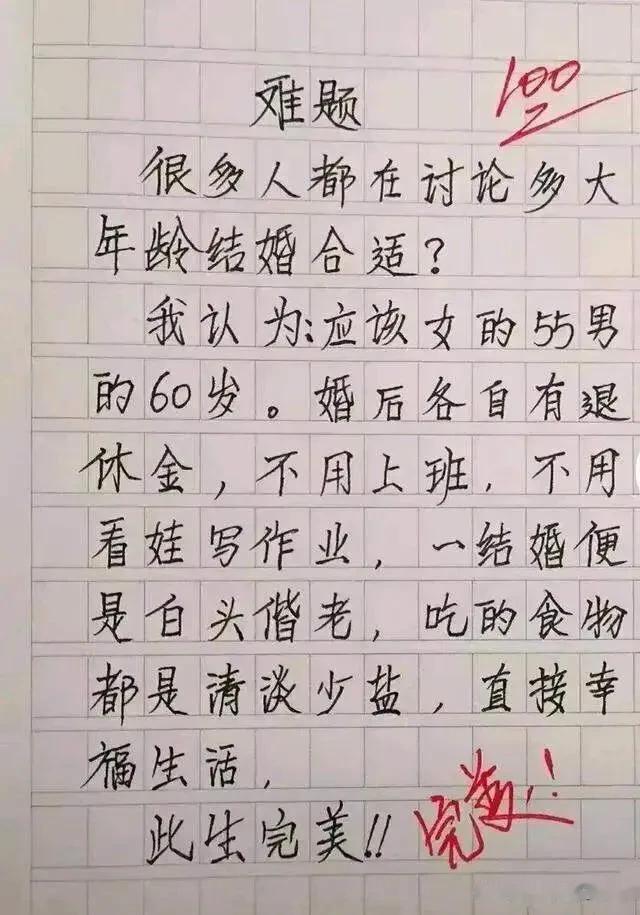 难题
100
很多人都在讨论多大
年龄结婚合适？
我认为：应该女的55男
的60岁。婚后各自有退
休金，不用上班，不用
看娃写作业，一结婚便
是白头偕老，吃的食物
都是清淡少盐，直接幸
福生活，
此生完美!!
完美!!